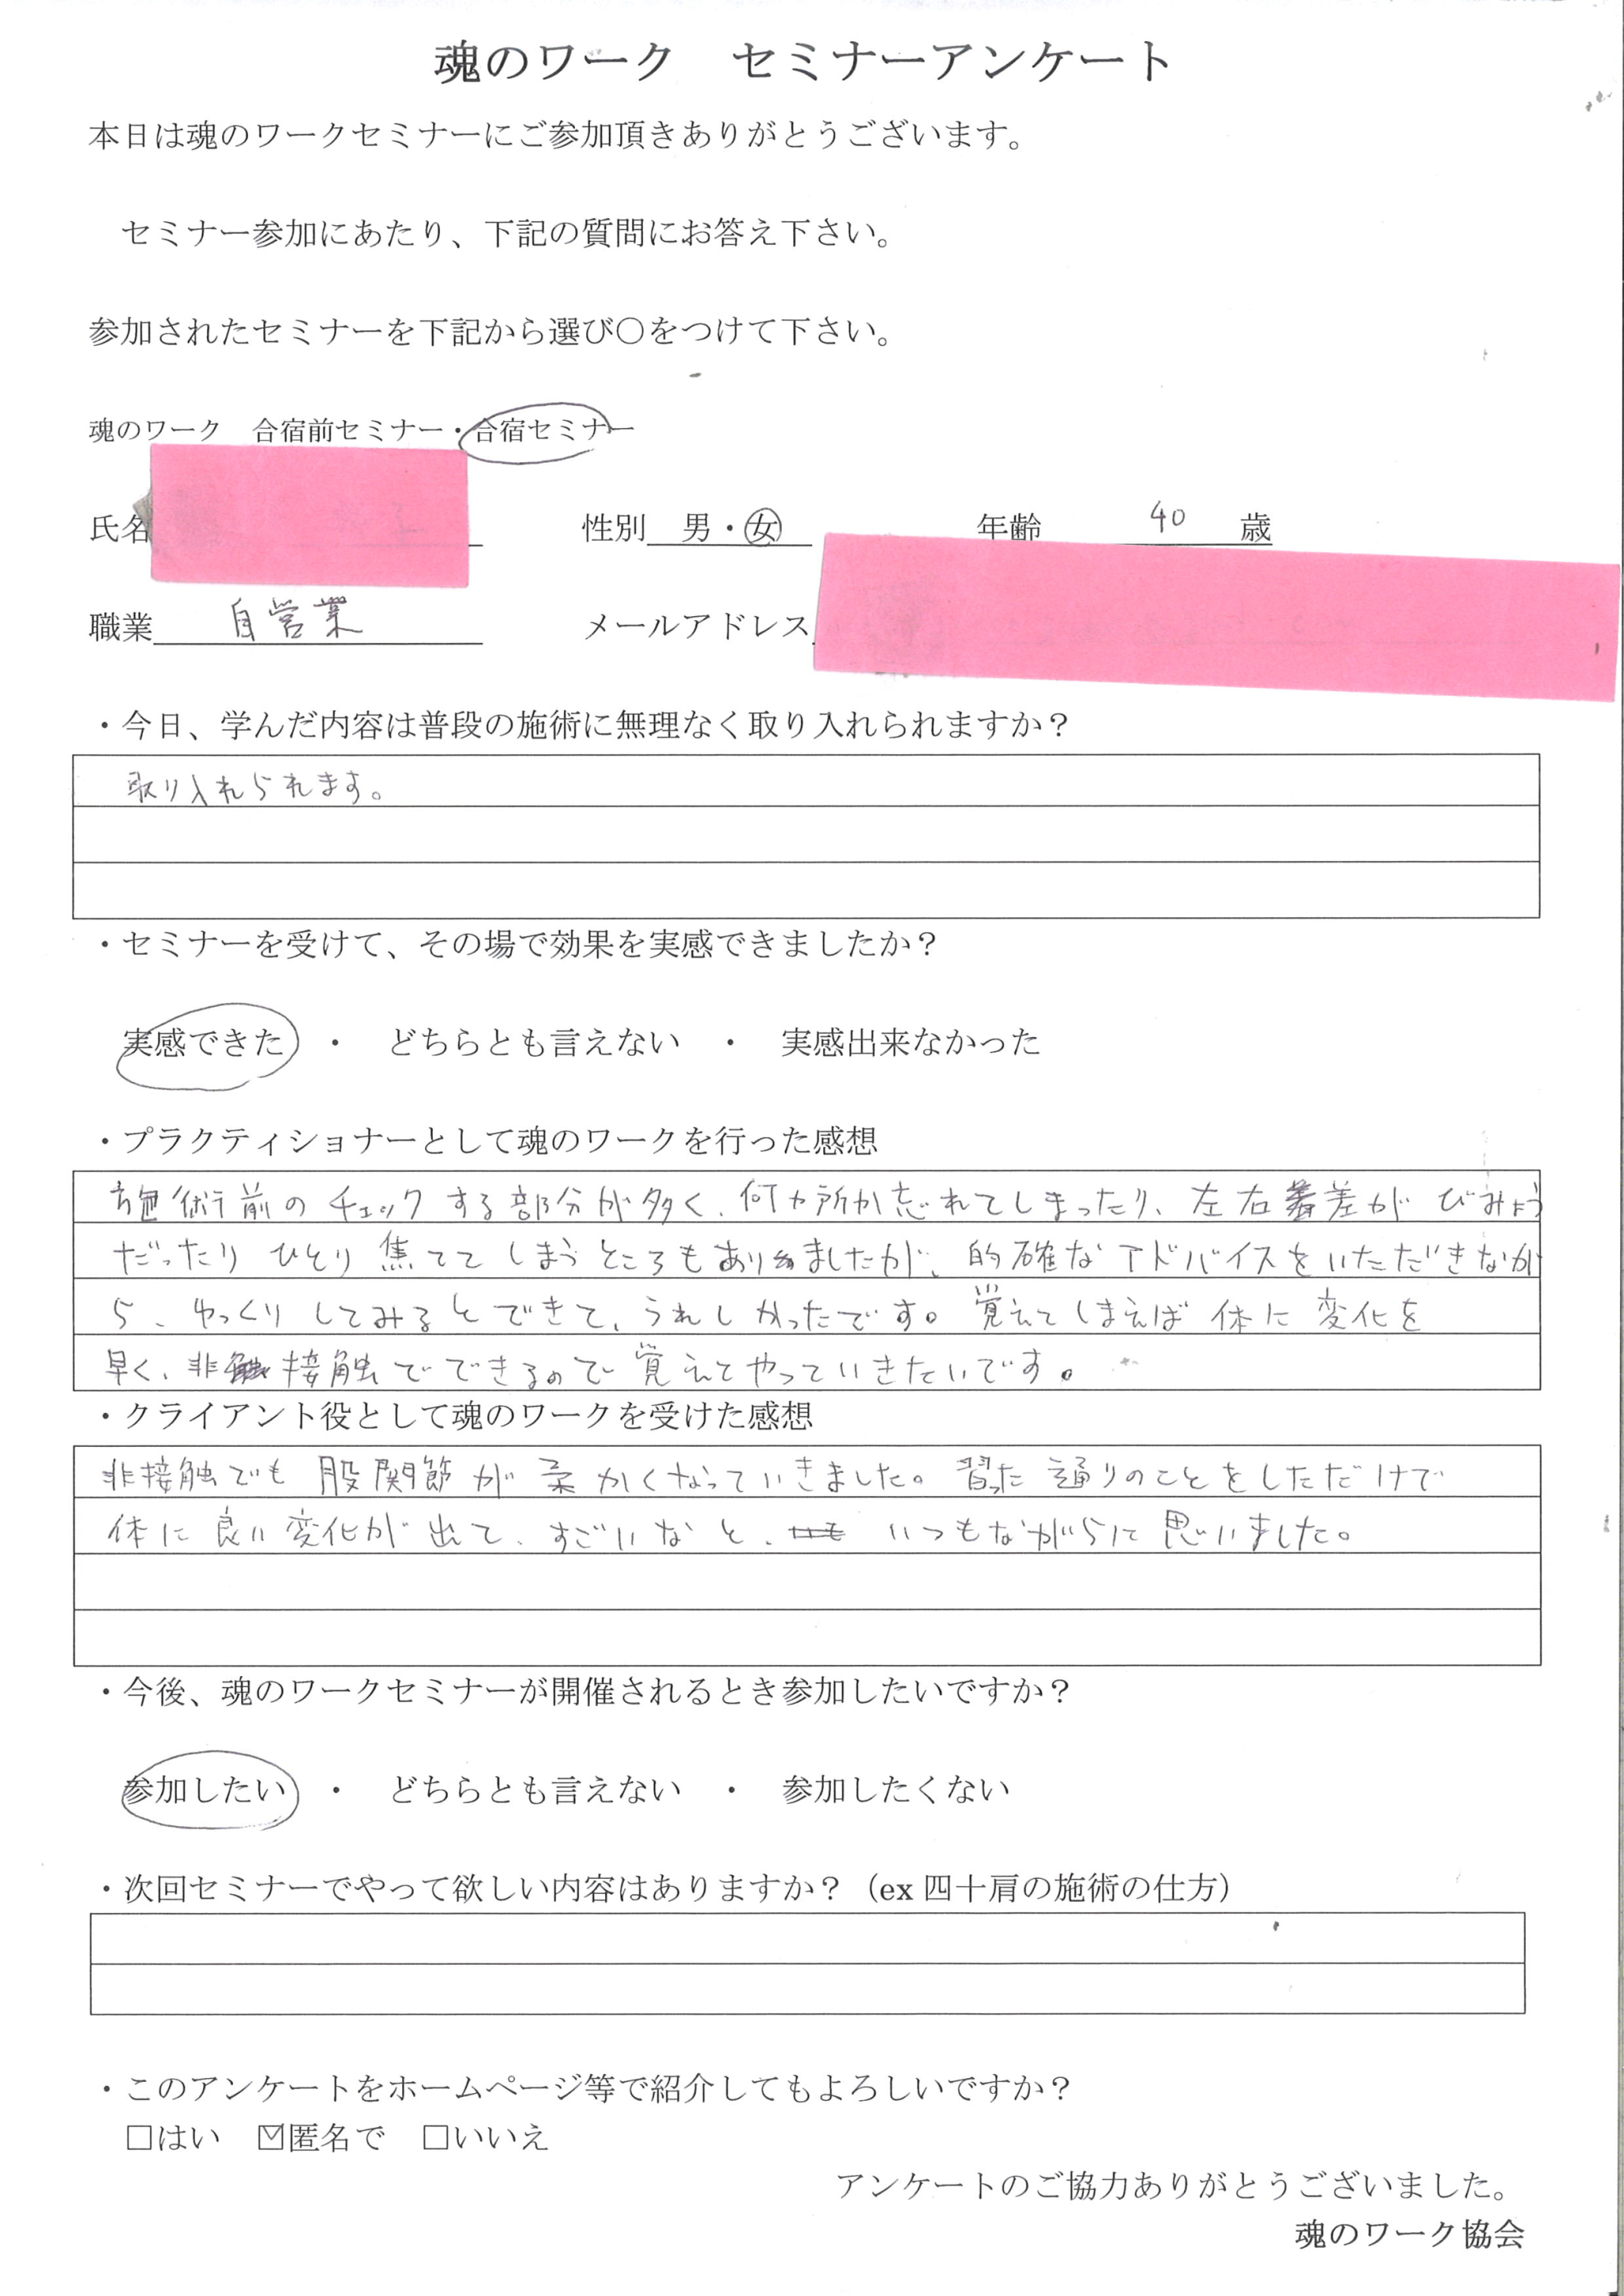 魂のワーク　セミナーアンケート
本日は魂のワークセミナーにご参加頂きありがとうございます。
セミナー参加にあたり、下記の質問にお答え下さい。
参加されたセミナーを下記から選び〇をつけて下さい。
魂のワーク　合宿前セミナー・合宿セミナー
氏名　性別　男・女　年齢　40　歳
職業　自営業　メールアドレス
・今日、学んだ内容は普段の施術に無理なく取り入れられますか？
取り入れられます。
・セミナーを受けて、その場で効果を実感できましたか？
実感できた　・　どちらとも言えない　・　実感出来なかった
・プラクティショナーとして魂のワークを行った感想
施術前のチェックする部分が多く、何ヵ所か忘れてしまったり、左右差がびみょう
だったりひとり焦ててしまうところもありましたが、的確なアドバイスをいただきなが
ら、ゆっくりしてみるとできて、うれしかったです。覚えてしまえば体に変化を
早く、非接触でできるので覚えてやっていきたいです。
・クライアント役として魂のワークを受けた感想
非接触でも股関節が柔かくなっていきました。習った通りのことをしただけで
体に良い変化が出て、すごいなと、いつもながらに思いました。
・今後、魂のワークセミナーが開催されるとき参加したいですか？
参加したい　・　どちらとも言えない　・　参加したくない
・次回セミナーでやって欲しい内容はありますか？（ex 四十肩の施術の仕方）
・このアンケートをホームページ等で紹介してもよろしいですか？
□はい　☑匿名で　□いいえ
アンケートのご協力ありがとうございました。
魂のワーク協会